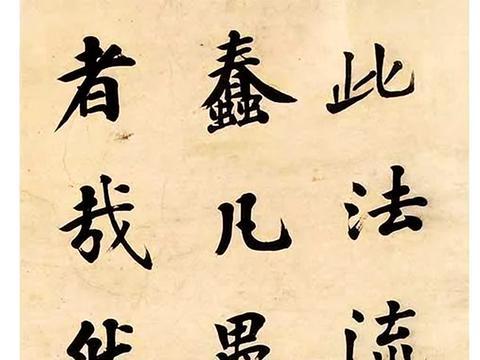 此法流
蠢凡愚
者哉然